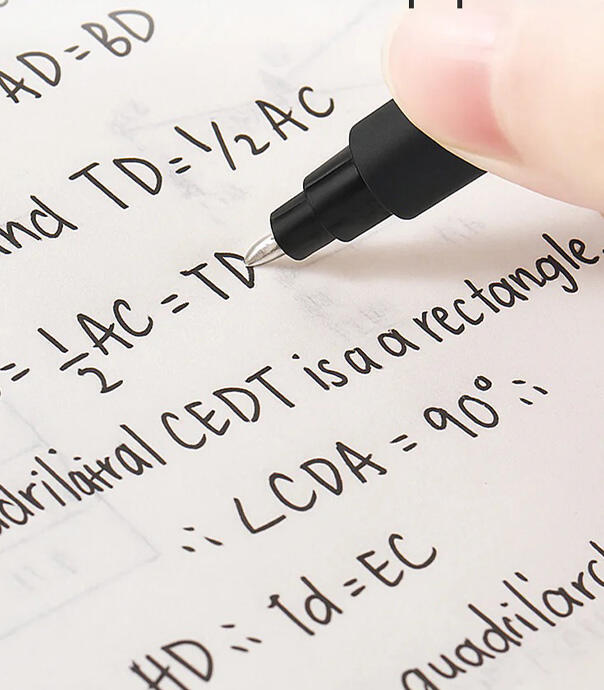 AD = BD
and TD = 1/2 AC
= 1/2 AC = TD
CEDT is a a rectangle.
∴ ∠CDA = 90° ∴
HD ∴ Td = EC